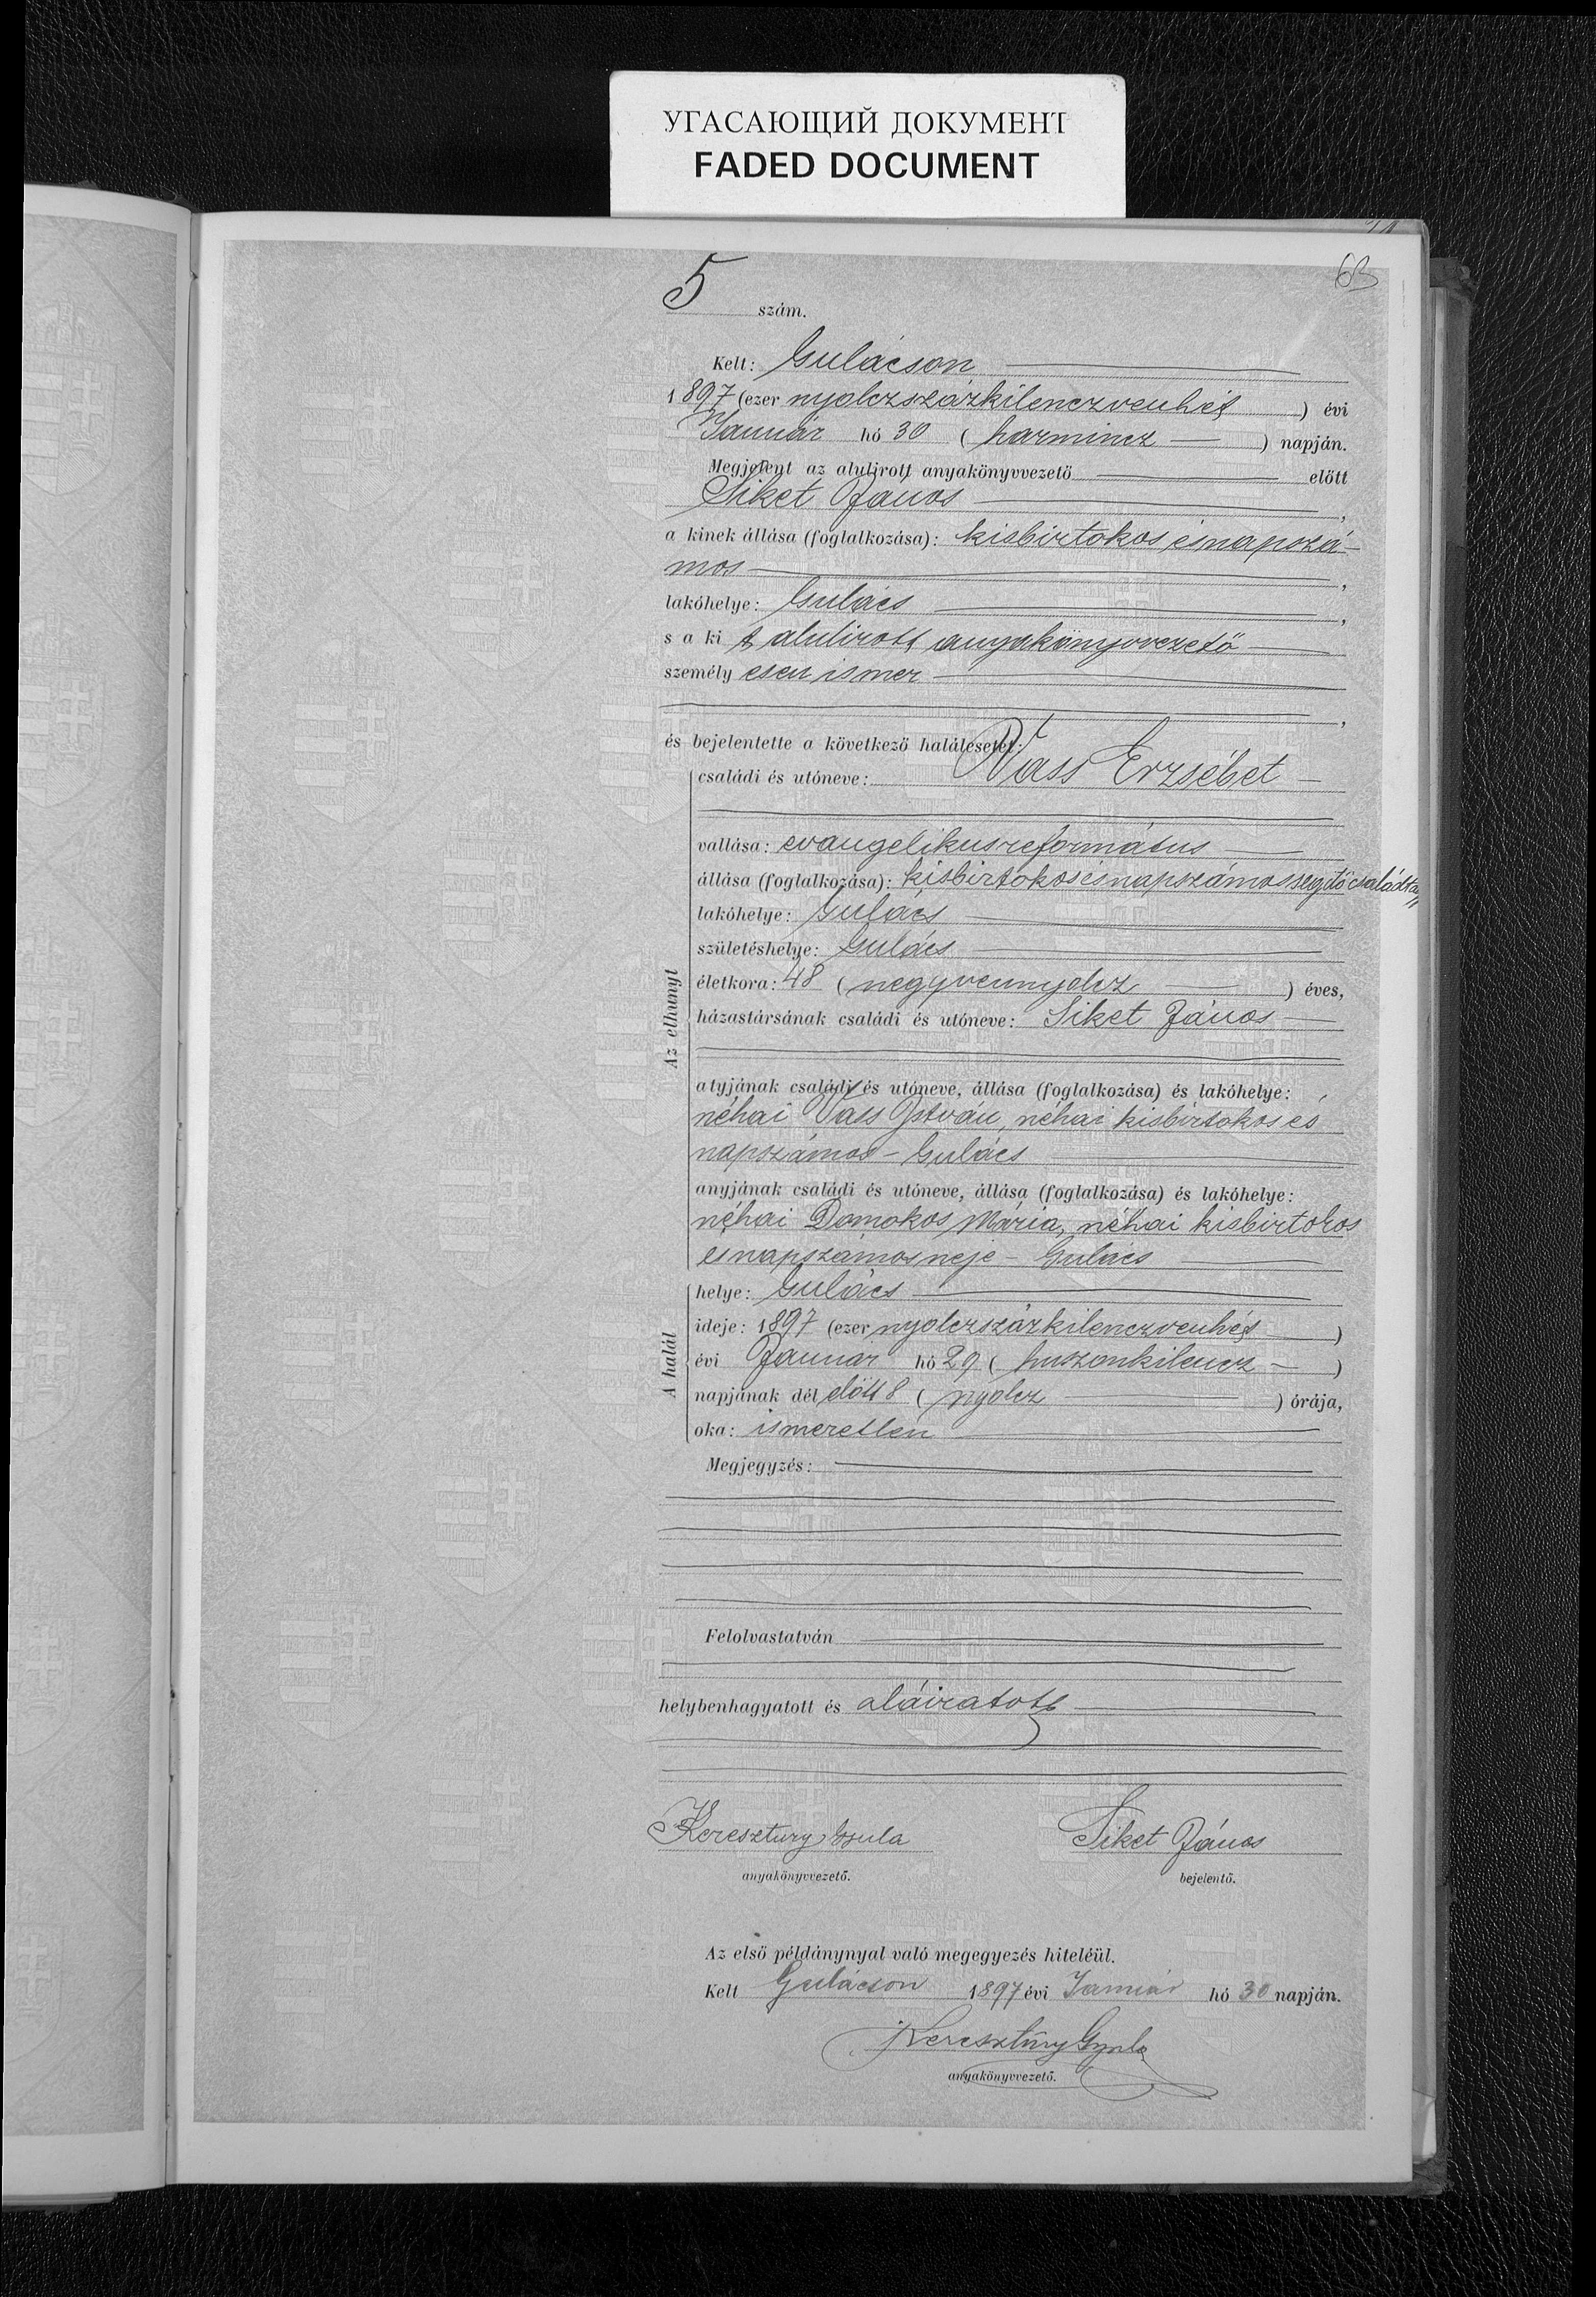 УГАСАЮЩИЙ ДОКУМЕНТ
FADED DOCUMENT
63
5 szám.
Kelt: Gulácson
1897 (ezer nyolczszázkilenczvenhét) évi
Január hó 30 (harmincz) napján.
Megjelent az alulirott anyakönyvvezető előtt
Siket János,
a kinek állása (foglalkozása): kisbirtokos és napszá-
mos,
lakóhelye: Gulács,
s a kit alulirott anyakönyvvezető
személyesen ismer
,
és bejelentette a következő halálesetet:
családi és utóneve: Vass Erzsébet
vallása: evangelikus református
állása (foglalkozása): kisbirtokos és napszámos segítő családtag
lakóhelye: Gulács
születéshelye: Gulács
életkora: 48 (negyvennyolcz) éves,
házastársának családi és utóneve: Siket János
Az elhunyt
atyjának családi és utóneve, állása (foglalkozása) és lakóhelye:
néhai Vass István, néhai kisbirtokos és
napszámos - Gulács
anyjának családi és utóneve, állása (foglalkozása) és lakóhelye:
néhai Domokos Mária, néhai kisbirtokos
és napszámos neje - Gulács
A halál
helye: Gulács
ideje: 1897 (ezer nyolczszázkilenczvenhét)
évi Január hó 29 (huszonkilencz)
napjának délelőtt 8 (nyolcz) órája,
oka: ismeretlen
Megjegyzés:
Felolvastatván
helybenhagyatott és aláiratott
Keresztury Gyula Siket János
anyakönyvvezető. bejelentő.
Az első példánynyal való megegyezés hiteléül.
Kelt Gulácson 1897 évi Január hó 30 napján.
Keresztúry Gyula
anyakönyvvezető.